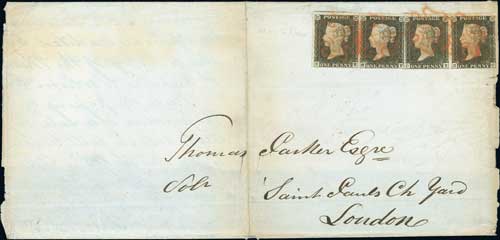 POSTAGE POSTAGE POSTAGE POSTAGE
ONE PENNY ONE PENNY ONE PENNY ONE PENNY
Thomas Parker Esqre
Solr Saint Pauls Ch Yard
London